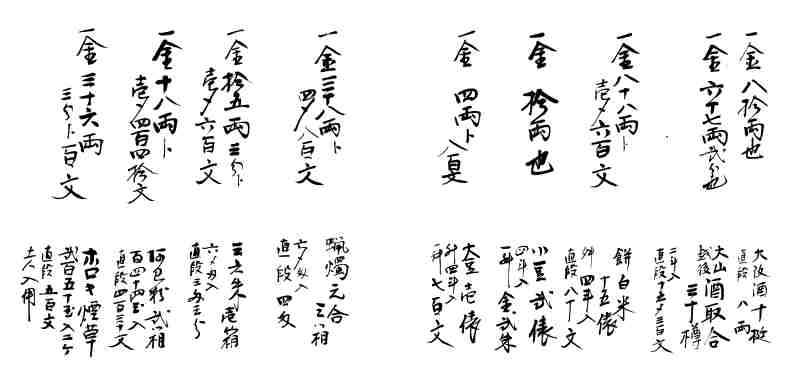 一金 八拾両也
大阪酒十挺
直段 八両
一金 六十七両弐分也
大山酒取合
越後 三十樽
二斗入
一金 八十八両ト
壱〆六百文
餅白米
十五俵
四斗入
直段 八十文
一金 拾両也
小豆弐俵
四斗入
一斗 金弐朱
一金 四両ト八百文
大豆壱俵
四斗入
一斗 七百文
一金 三十八両ト
四〆八百文
蝋燭元合
直段 四匁
一金 拾五両三分ト
壱〆六百文
直段三匁三分
一金 十八両ト
壱〆四百四拾文
百四十四玉入
直段四百三十文
一金 三十六両
三分ト百文
煙草
弐百五十玉入二ケ
直段 五百文
土人入用